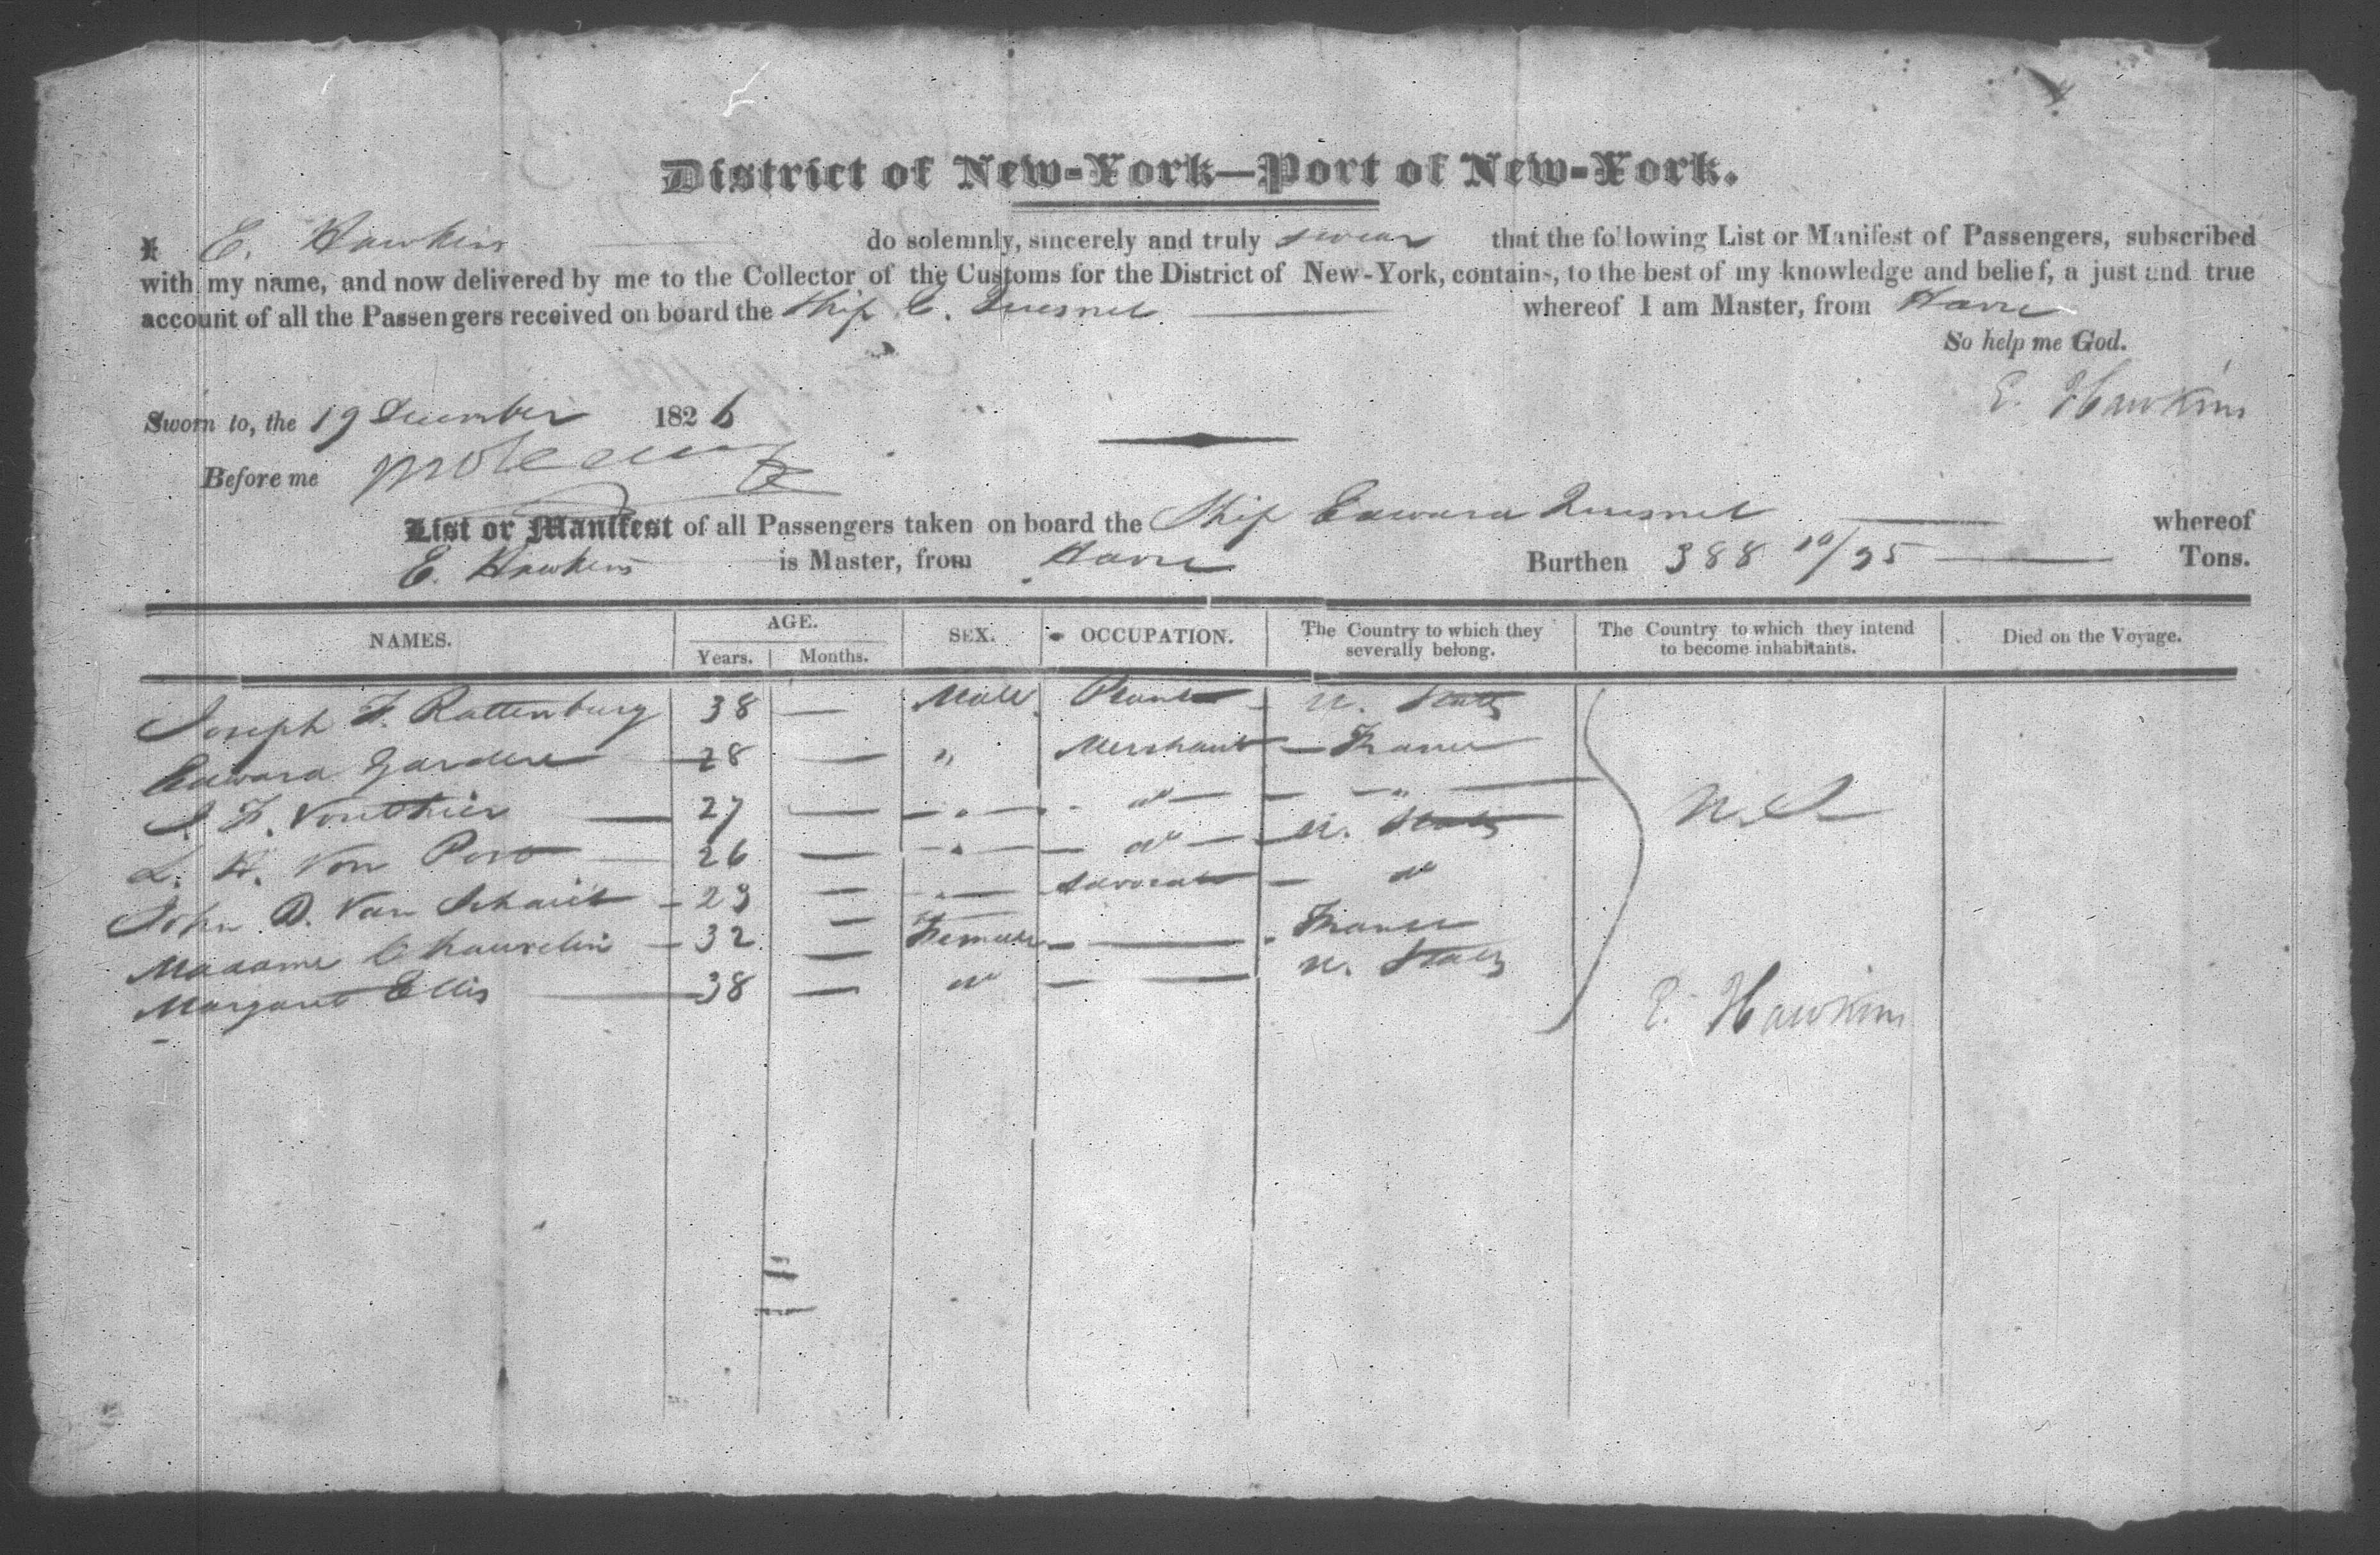 District of New-York—Port of New-York.
I E. Hawkins do solemnly, sincerely and truly swear that the following List or Manifest of Passengers, subscribed
with my name, and now delivered by me to the Collector of the Customs for the District of New-York, contains, to the best of my knowledge and belief, a just and true
account of all the Passengers received on board the Ship E. Quesnel whereof I am Master, from Havre
So help me God.
E. Hawkins
Sworn to, the 19 December 1826
Before me
List or Manifest of all Passengers taken on board the Ship Edward Quesnel whereof
E. Hawkins is Master, from Havre Burthen 388 10/95 Tons.
NAMES. AGE. Years. Months. SEX. OCCUPATION. The Country to which they severally belong. The Country to which they intend to become inhabitants. Died on the Voyage.
Joseph F. Rattenbury 38 — Male Planter U. States
Edward Gardere 28 — " Merchant France
J. F. Vouthier 27 — " do "
L. H. Von Post 26 — " do U. States
John D. Van Schaick 23 — " Advocate do
Madame Chauvelin 32 — Female — France
Margaret Ellis 38 — do — U. States
U.S.
E. Hawkins